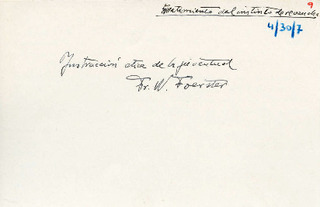 9
Tratamiento del instinto de revancha
4/30/7
Instrucción ética de la juventud
Dr. W. Foerster